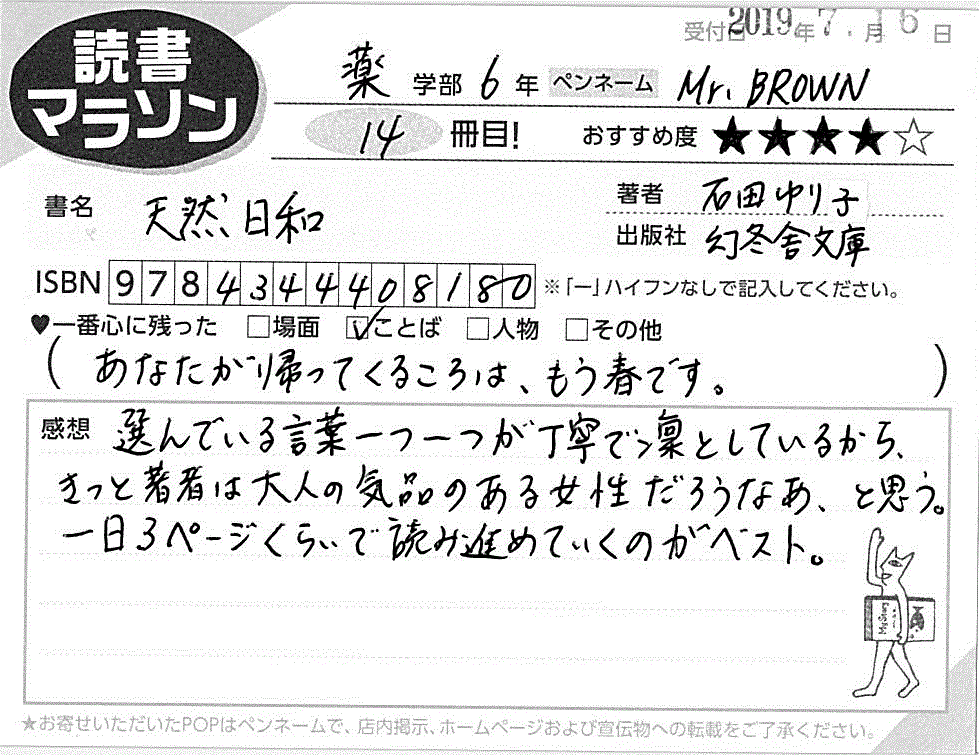 読書
マラソン
受付日 2019年 7.月 16日
薬 学部 6 年 ペンネーム Mr. BROWN
14 冊目! おすすめ度 ★★★★☆
書名 天然日和
著者 石田ゆり子
出版社 幻冬舎文庫
ISBN 9784344408180 ※「ー」ハイフンなしで記入してください。
♥一番心に残った □場面 ☑ことば □人物 □その他
(あなたが帰ってくるころは、もう春です。)
感想 選んでいる言葉一つ一つが丁寧で凛としているから、
きっと著者は大人の気品のある女性だろうなあ、と思う。
一日3ページくらいで読み進めていくのがベスト。
★お寄せいただいたPOPはペンネームで、店内掲示、ホームページおよび宣伝物への転載をご了承ください。